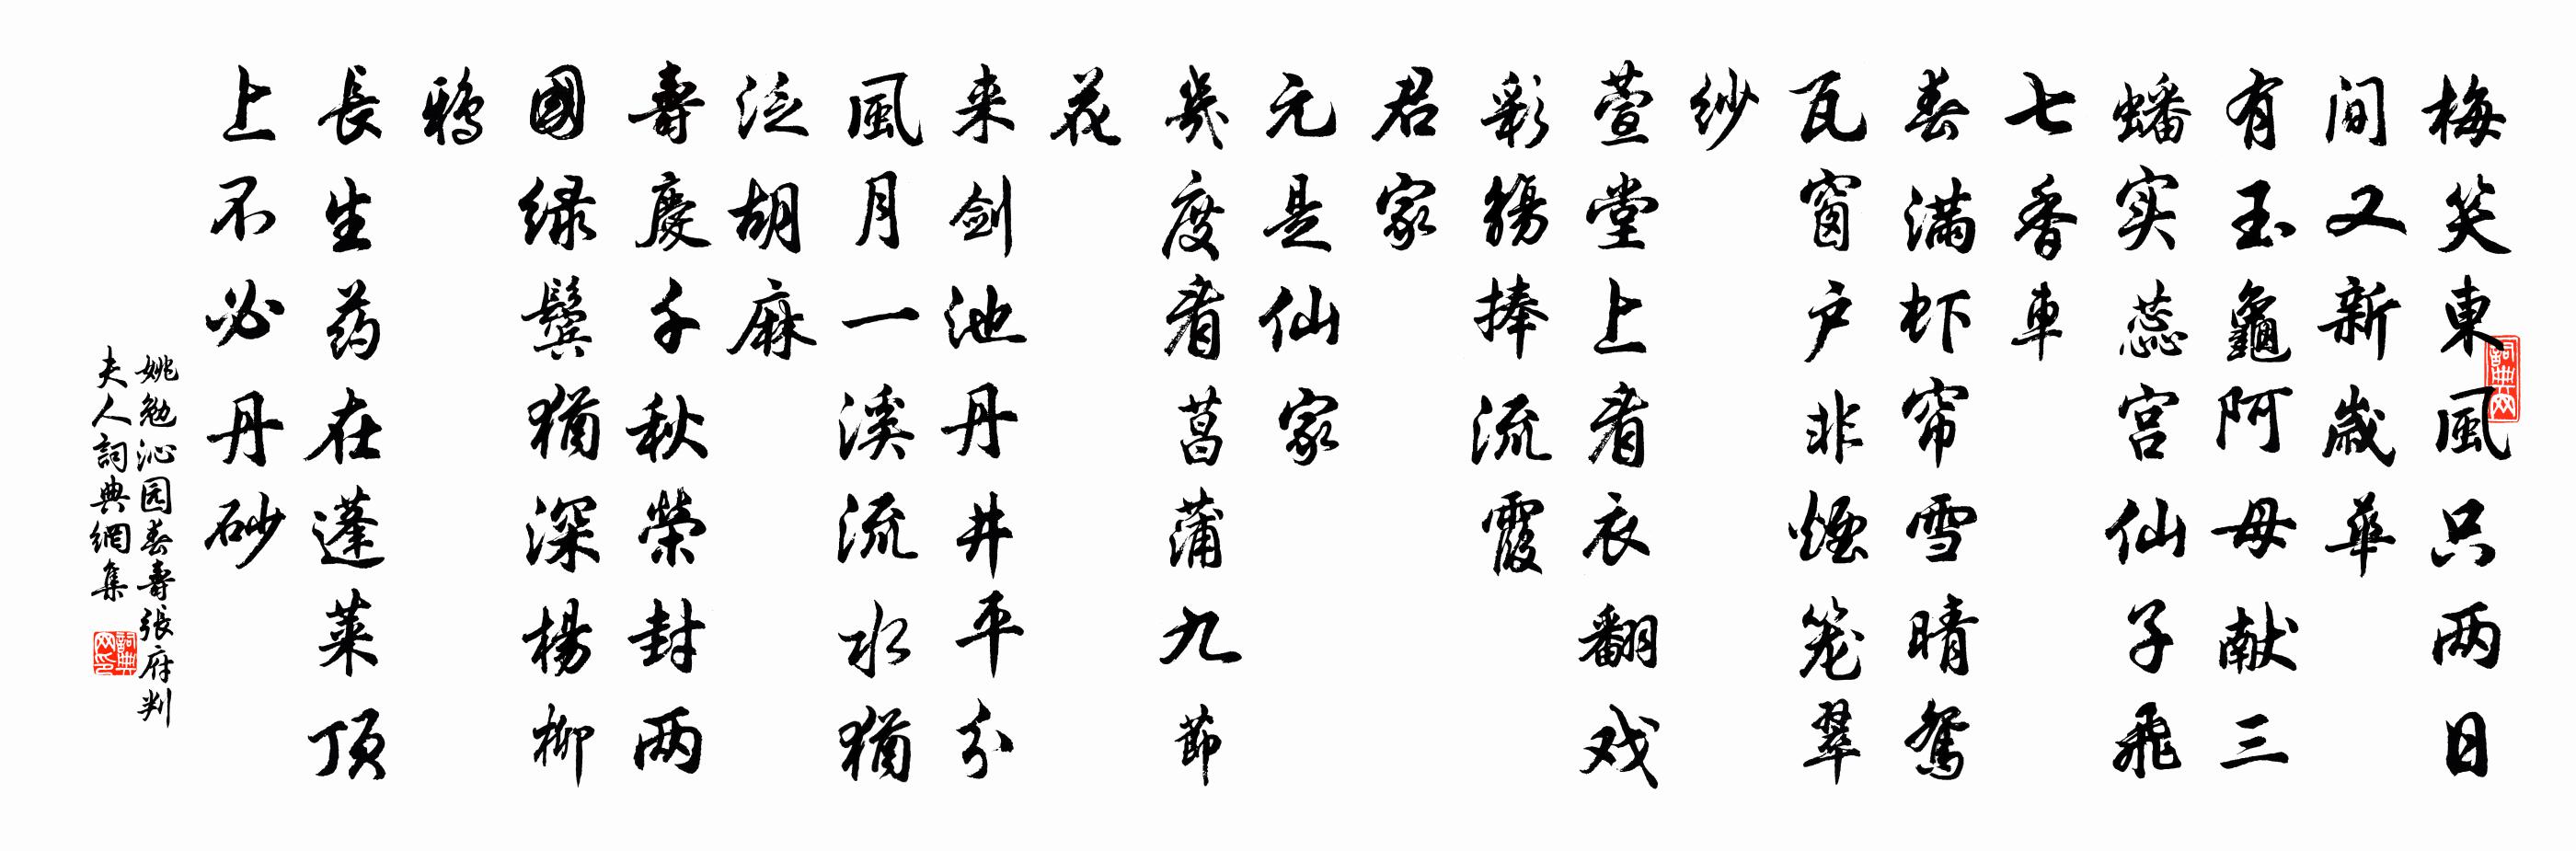 梅笑東風只两日
间又新歲華
有玉龜阿母献三
蟠实蕊宫仙子飛
七香車
春满虾帘雪晴鸳
瓦窗户非煙笼翠
纱
萱堂上看衣翻戏
彩觴捧流霞
君家
元是仙家
幾度看菖蒲九節
花
来剑池丹井平分
風月一溪流水犹
泛胡麻
壽慶千秋榮封两
國绿鬓犹深楊柳
鸦
長生药在蓬莱顶
上不必丹砂
姚勉沁园春壽張府判
夫人詞典網集
詞典网
詞典网印